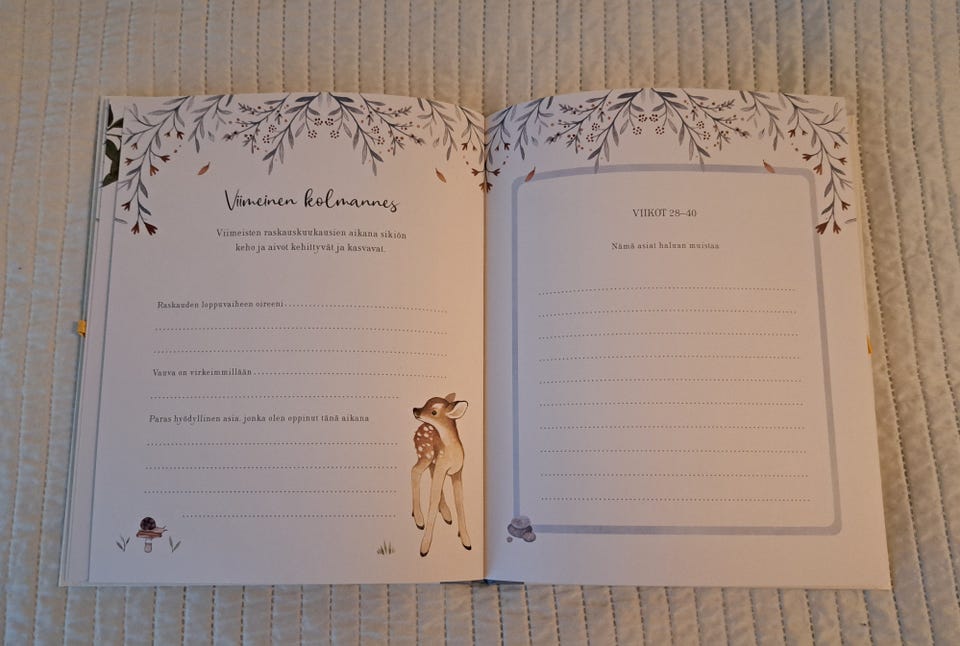 Viimeinen kolmannes
Viimeisten raskauskuukausien aikana sikiön
keho ja aivot kehittyvät ja kasvavat.
Raskauden loppuvaiheen oireeni
Vauva on virkeimmillään
Paras hyödyllinen asia, jonka olen oppinut tänä aikana
VIIKOT 28–40
Nämä asiat haluan muistaa